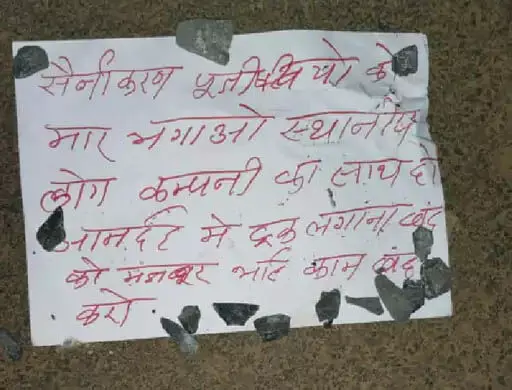 सैनीकरण पूंजीपतियो को
मार भगाओ स्थानीय
लोग कम्पनी का साथ दो
में ट्रक लगाना बंद
को मजदूर भाई काम बंद
करो